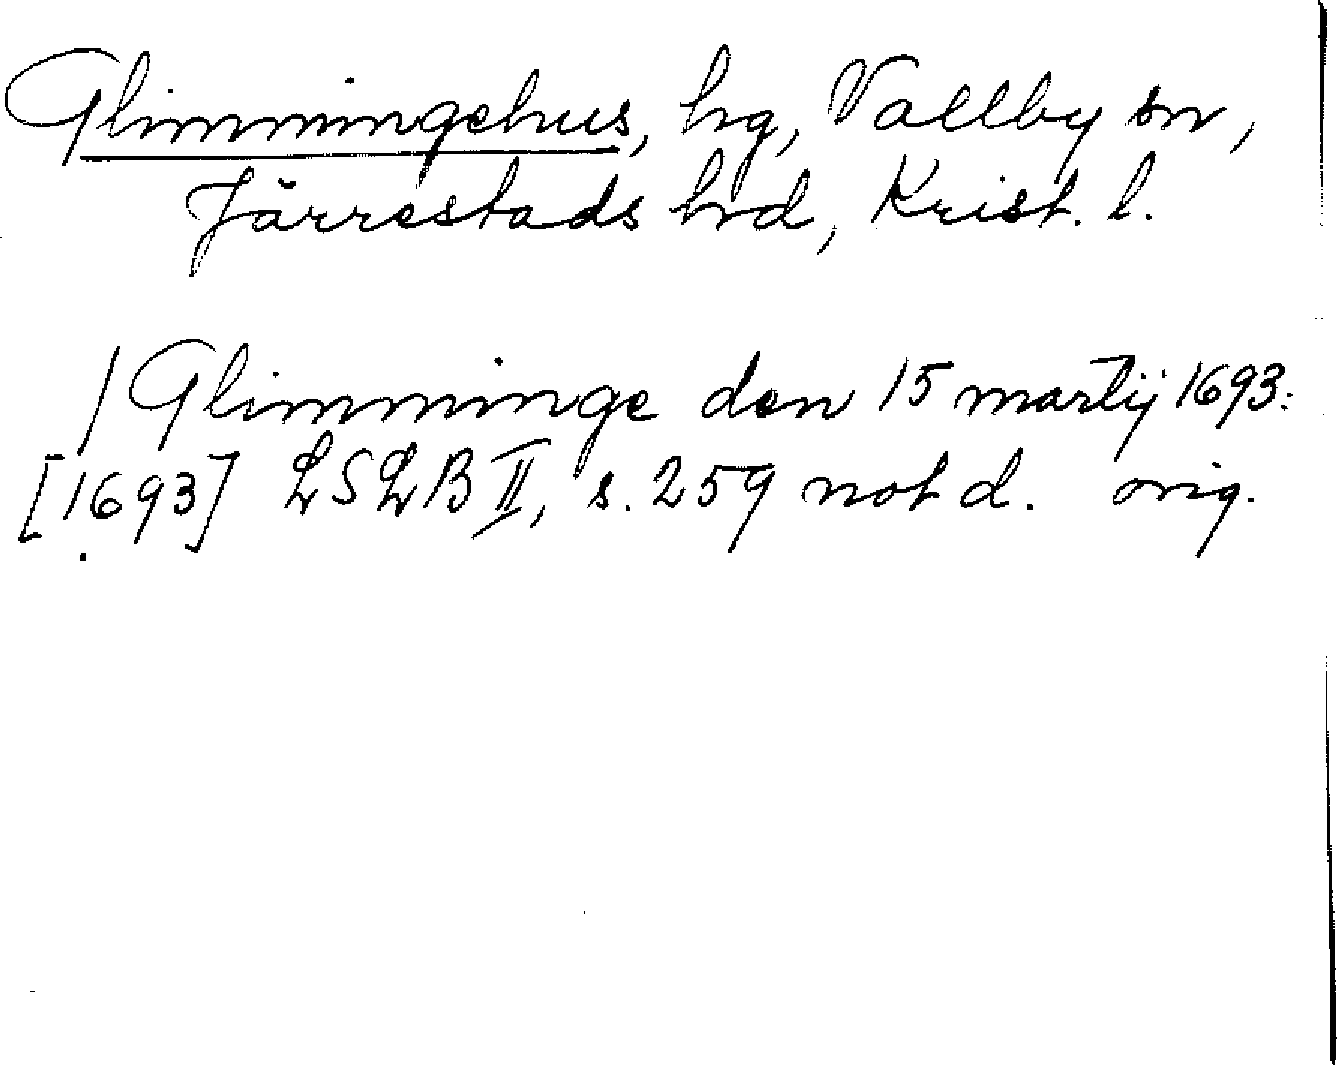 Glimmingehus, hg, Vallby sn,
Järrestads hrd, Krist. l.
/Glimminge den 15 martij 1693:
[1693] LSLB II, s. 259 not d. orig.